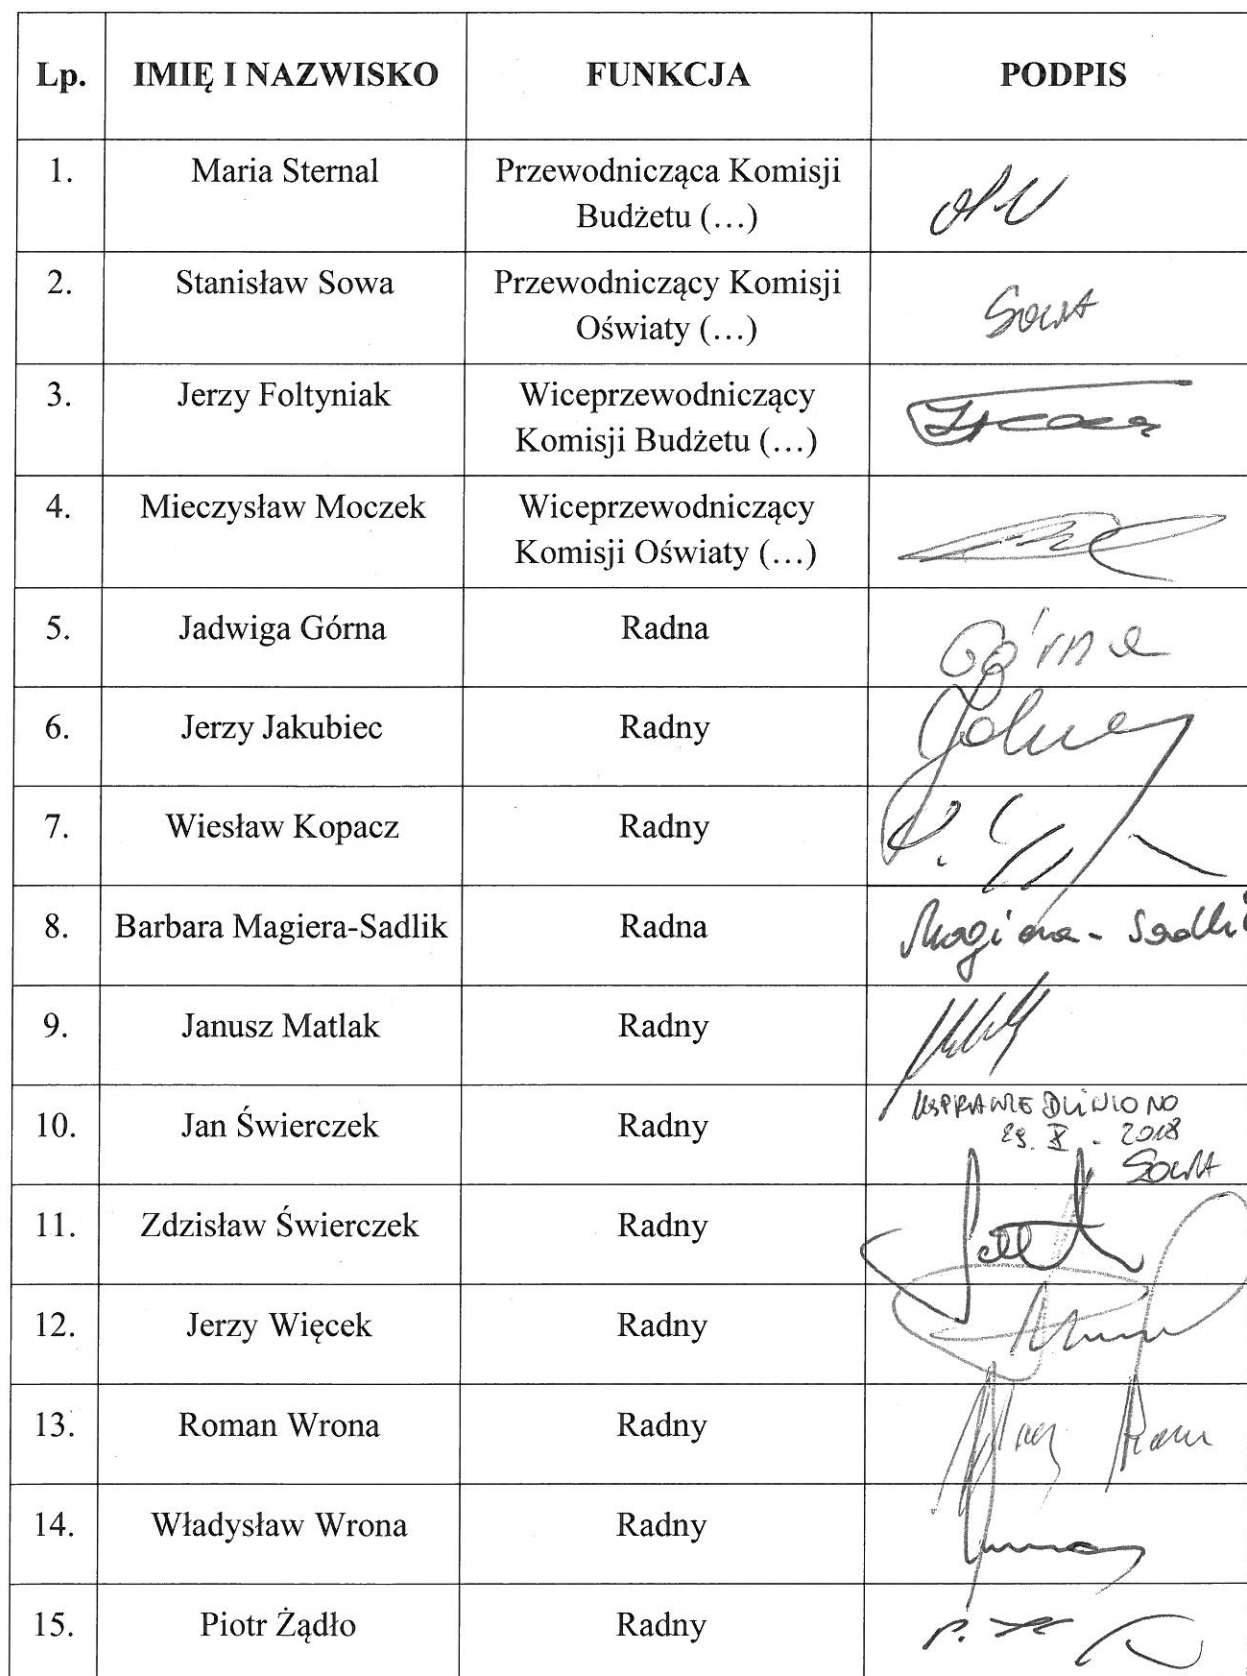 Lp. IMIĘ I NAZWISKO FUNKCJA PODPIS
1. Maria Sternal Przewodnicząca Komisji
Budżetu (…)
2. Stanisław Sowa Przewodniczący Komisji
Oświaty (…) Sowa
3. Jerzy Foltyniak Wiceprzewodniczący
Komisji Budżetu (…)
4. Mieczysław Moczek Wiceprzewodniczący
Komisji Oświaty (…)
5. Jadwiga Górna Radna Górna
6. Jerzy Jakubiec Radny
7. Wiesław Kopacz Radny
8. Barbara Magiera-Sadlik Radna Magiera-Sadlik
9. Janusz Matlak Radny
10. Jan Świerczek Radny USPRAWIEDLIWIONO
29. X - 2018
SOWA
11. Zdzisław Świerczek Radny
12. Jerzy Więcek Radny
13. Roman Wrona Radny
14. Władysław Wrona Radny
15. Piotr Żądło Radny